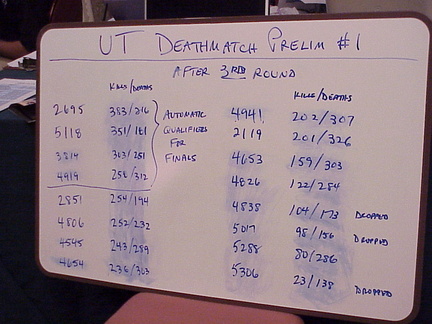 UT DEATHMATCH PRELIM #1
AFTER 3RD ROUND
KILLS/DEATHS
2695 383/216
5118 351/181
3214 303/251
4919 256/312
2851 254/194
4806 252/232
4545 243/289
4654 236/303
AUTOMATIC
QUALIFIERS
FOR
FINALS
KILLS/DEATHS
4941 202/307
2119 201/326
4653 159/303
4826 122/284
4838 104/173 DROPPED
5017 98/156 DROPPED
5288 80/286
5306 23/138 DROPPED